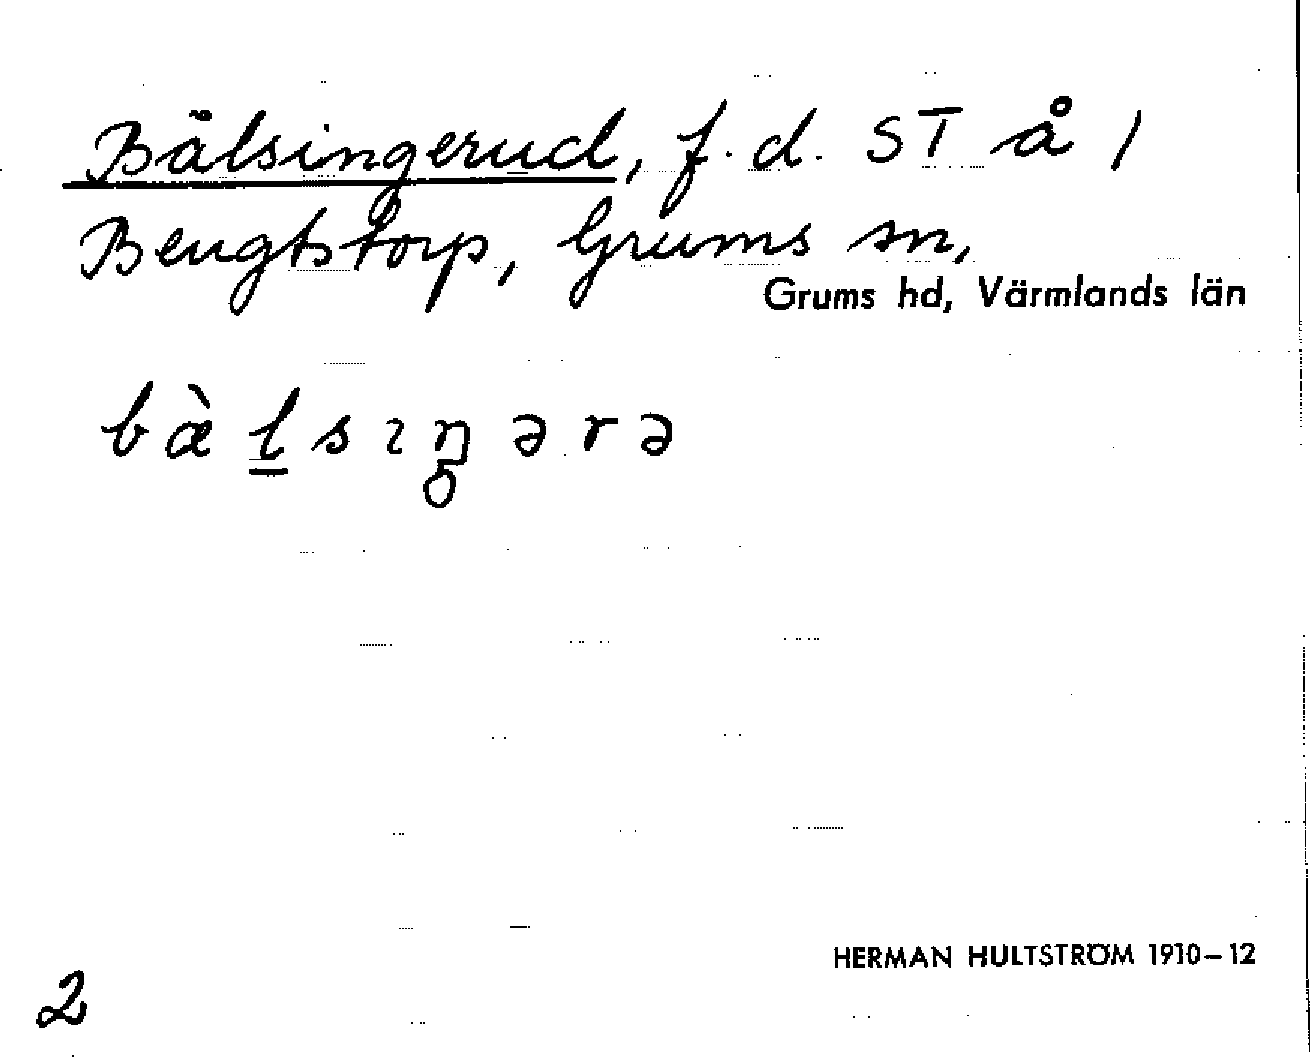 Bälsingerud, f.d. ST å /
Bengtstorp, Grums sn,
Grums hd, Värmlands län
bæ̀l̲sıŋərə
HERMAN HULTSTRÖM 1910–12
2